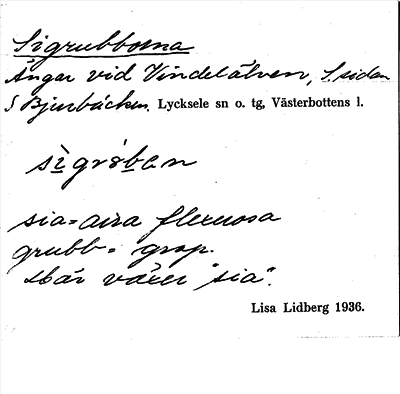 Sigrubborna
Ängar vid Vindelälven, S. sidan
S Bjurbäcken. Lycksele sn o. tg, Västerbottens l.
sìgrɵ̀ban
sia = aira flexuosa
grubb = grop.
där växer "sia".
Lisa Lidberg 1936.